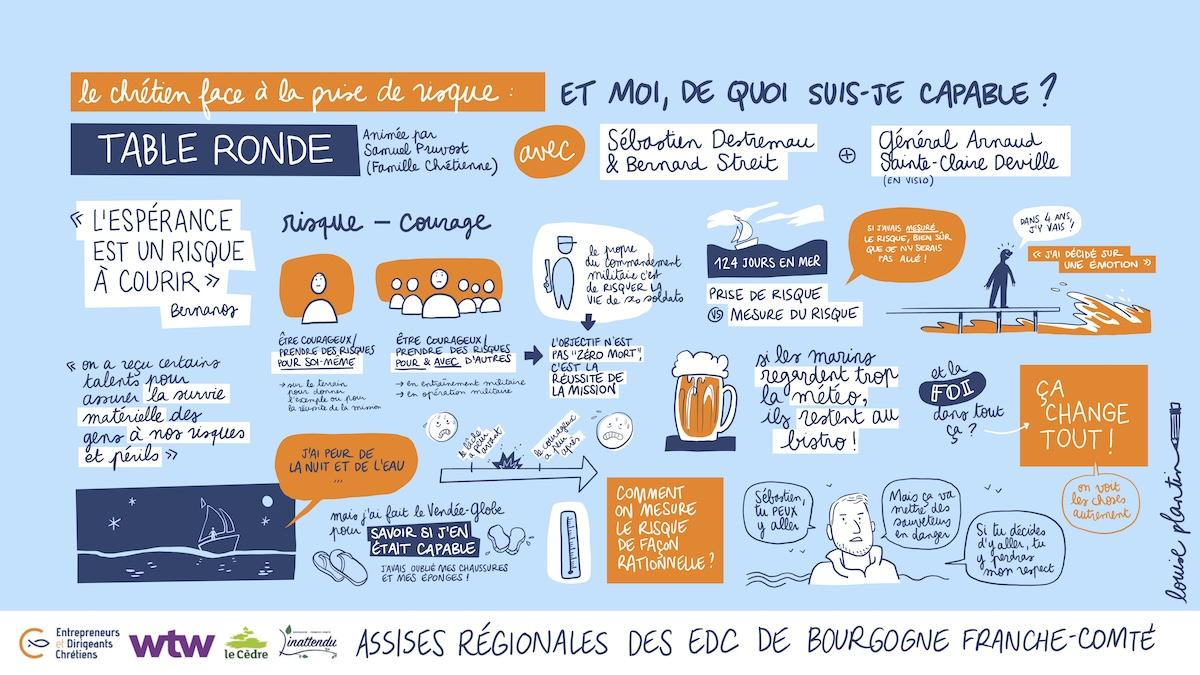 le chrétien face à la prise de risque :
ET MOI, DE QUOI SUIS-JE CAPABLE ?
TABLE RONDE
Animée par
Samuel Pruvost
(Famille Chrétienne)
avec
Sébastien Destremau
& Bernard Streit
+
Général Arnaud
Sainte-Claire Deville
(EN VISIO)
« L'ESPÉRANCE
EST UN RISQUE
À COURIR »
Bernanos
risque – courage
ÊTRE COURAGEUX/
PRENDRE DES RISQUES
POUR SOI-MÊME
→ sur le terrain
pour donner
l'exemple ou pour
la réussite de la mission
ÊTRE COURAGEUX/
PRENDRE DES RISQUES
POUR & AVEC D'AUTRES
→ en entraînement militaire
→ en opération militaire
le propre
du commandement
militaire c'est
de RISQUER LA
VIE de ses soldats
L'OBJECTIF N'EST
PAS "ZÉRO MORT",
C'EST LA
RÉUSSITE DE
LA MISSION
124 JOURS EN MER
PRISE DE RISQUE
VS MESURE DU RISQUE
SI J'AVAIS MESURÉ
LE RISQUE, BIEN SÛR
QUE JE N'Y SERAIS
PAS ALLÉ !
DANS 4 ANS,
J'Y VAIS !
« J'AI DÉCIDÉ SUR
UNE ÉMOTION »
« on a reçu certains
talents pour
assurer la survie
matérielle des
gens à nos risques
et périls »
J'AI PEUR DE
LA NUIT ET DE L'EAU
...
mais j'ai fait le Vendée-Globe
pour SAVOIR SI J'EN
ÉTAIT CAPABLE
J'AVAIS OUBLIÉ MES CHAUSSURES
ET MES ÉPONGES !
le lâche
a peur
avant
le courageux
a peur
après
COMMENT
ON MESURE
LE RISQUE
DE FAÇON
RATIONNELLE ?
si les marins
regardent trop
la météo,
ils restent au
bistro !
et la
FOI
dans tout
ça ?
ÇA
CHANGE
TOUT !
on voit
les choses
autrement
Sébastien,
tu PEUX
y aller
Mais ça va
mettre des
sauveteurs
en danger
Si tu décides
d'y aller, tu
y perdras
mon respect
louise plantin
Entrepreneurs
et Dirigeants
Chrétiens
wtw
le Cèdre
L'inattendu
ASSISES RÉGIONALES DES EDC DE BOURGOGNE FRANCHE-COMTÉ